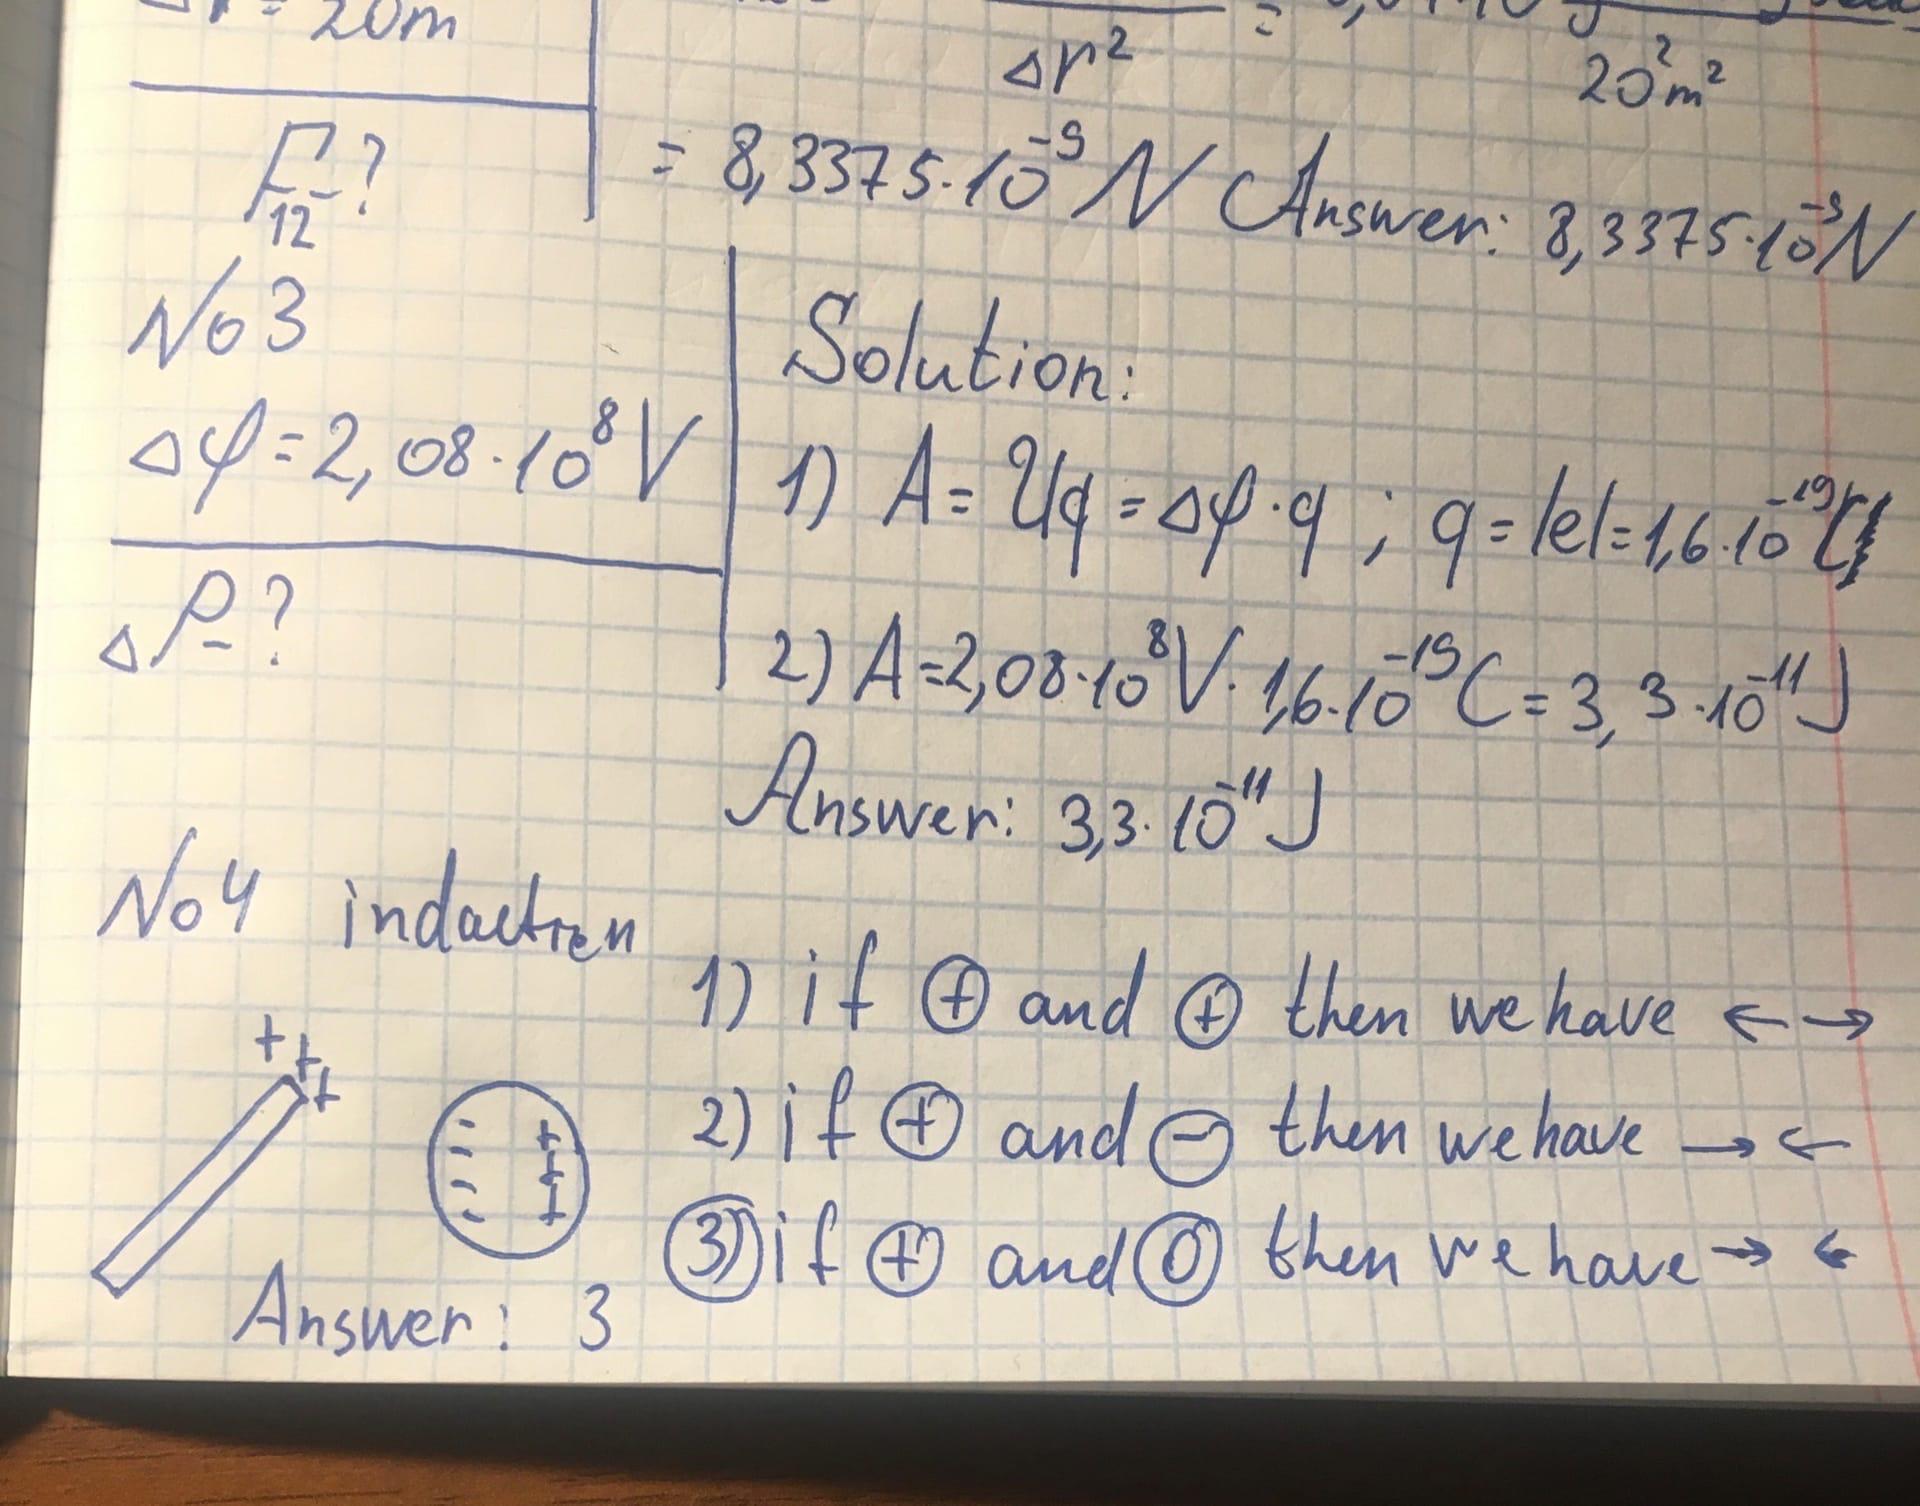 = 20m
Δr²
20²m²
F₁₂-?
= 8,3375·10⁻⁹ N Answer: 8,3375·10⁻⁹ N
No3
Solution:
Δφ = 2,08·10⁸ V
1) A = Uq = Δφ·q ; q = |e| = 1,6·10⁻¹⁹ C
ΔP-?
2) A = 2,08·10⁸ V · 1,6·10⁻¹⁹ C = 3,3·10⁻¹¹ J
Answer: 3,3·10⁻¹¹ J
No4 indaction
1) if ⊕ and ⊕ then we have ← →
+ + +
2) if ⊕ and ⊖ then we have → ←
- - - - + + + +
3) if ⊕ and 0 then we have → ←
Answer: 3